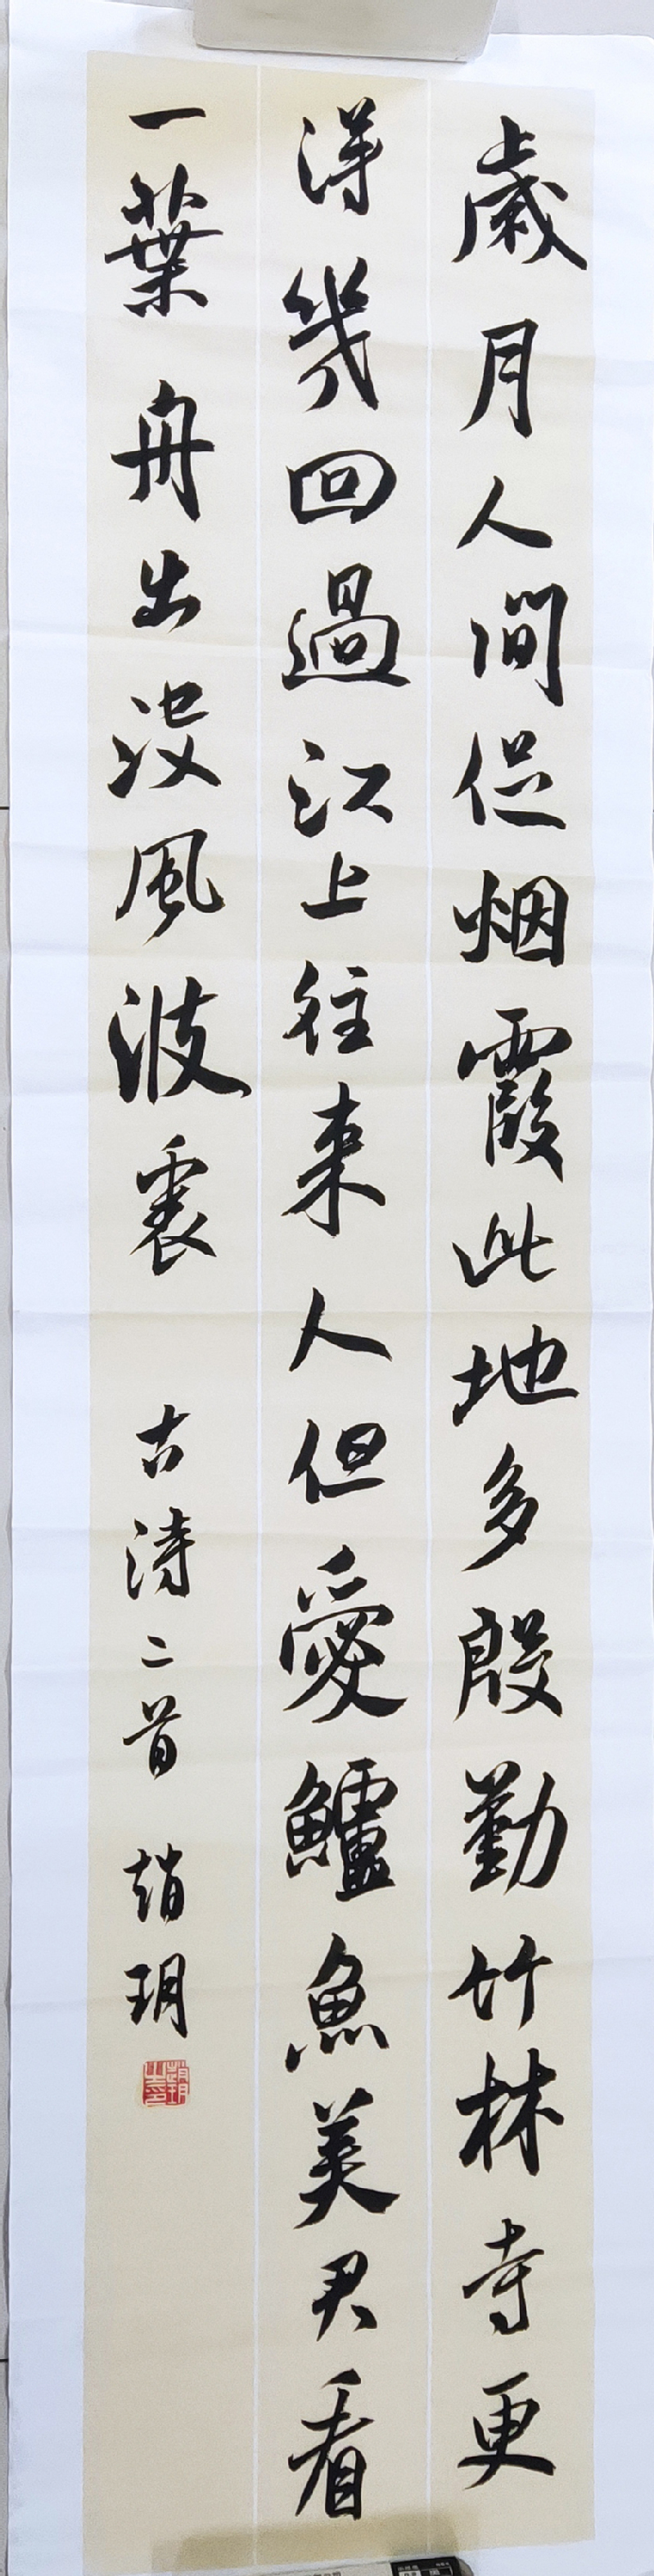 歲月人間促烟霞此地多殷勤竹林寺更
得幾回過江上往來人但愛鱸魚美君看
一葉舟出沒風波裏 古詩二首 趙玥